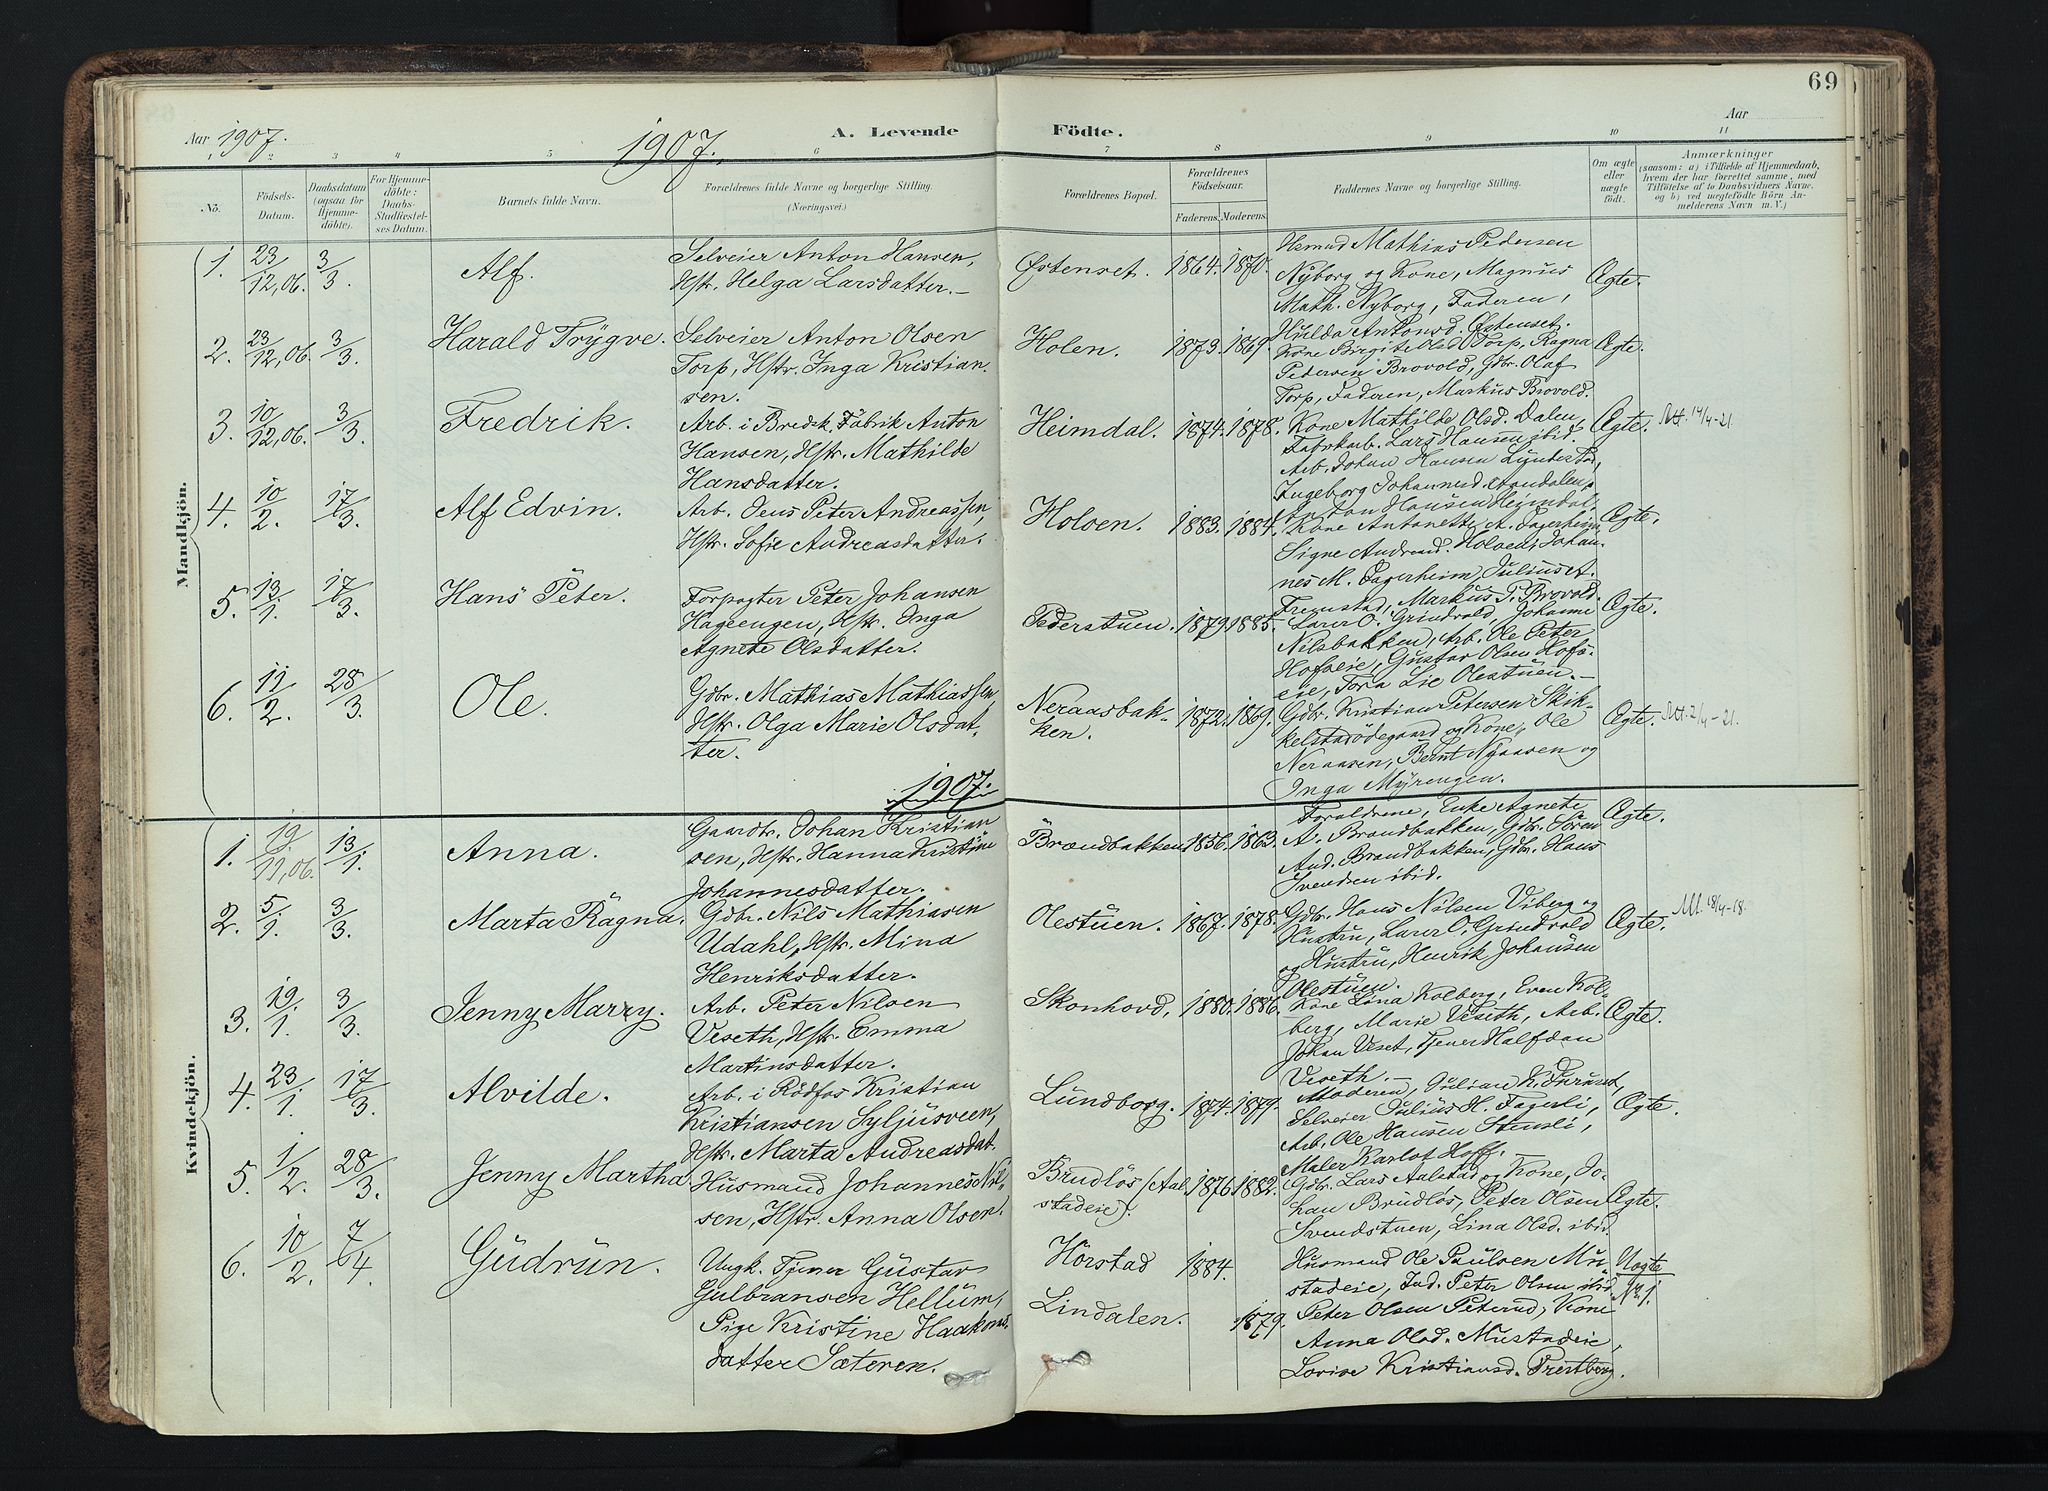 69
Aar 1907.
1907.
A. Levende
Födte.
Aar
1 2 3 4 5 6 7 8 9 10 11
No.
Födsels-Datum.
Daabsdatum (ogsaa for Hjemmedöbte).
For Hjemmedöbte: Daabs-Stadfæstelses Datum.
Barnets fulde Navn.
Forældrenes fulde Navne og borgerlige Stilling.
(Næringsvei.)
Forældrenes Bopæl.
Forældrenes Födselsaar.
Faderens. Moderens.
Faddernes Navne og borgerlige Stilling.
Om ægte eller uægte födt.
Anmærkninger
(saasom: a) i Tilfælde af Hjemmedaab,
hvem der har forrettet samme, med
Tilföielse af to Daabsvidners Navne.
og b) ved uægtefödte Börn An-
melderens Navn m. V.)
Mandkjön.
1. 23/12,06. 3/3 Alf.
Selveier Anton Hansen,
Hstr. Helga Larsdatter.
Østenset. 1864. 1870.
Mathias Pedersen
Nyborg og Kone, Magnus
Math. Nyborg, Faderen,
Hvilda Antonsd. Østenset.
Ægte.
2. 23/12,06. 3/3. Harald Trygve.
Selveier Anton Olsen
Torp, Hstr. Inga Kristian-
sen.
Holen. 1873. 1869.
Kone Birgite Olsd Torp, Ragna
Pedersen Brovold, Gdbr. Olaf
Torp, Faderen, Markus Brovold.
Ægte.
3. 10/12,06. 3/3. Fredrik.
Arb. i Bredsk. Fabrik Anton
Hansen, Hstr. Mathilde
Hansdatter.
Heimdal. 1874. 1878.
Kone Mathilde Olsd. Dalen,
Fabrkarb. Lars Hansen ibid.
Arb. Johan Hansen
Ingeborg Johannesd.
Anton Hansen Heimdal.
Ægte. 14/4-21.
4. 10/2. 17/3. Alf Edvin.
Arb. Jens Peter Andreassen,
Hstr. Sofie Andreasdatter.
Holoen. 1883. 1884.
Kone Antonette A. Fagerheim
Signe Andread. Holoen, Johan-
nes M. Fagerheim, Juliuset.
Ægte.
5. 13/1. 17/3. Hans Peter.
Forpagter Peter Johansen
Hageengen, Hstr. Inga
Agnete Olsdatter.
Pederstuen. 1879. 1885.
Markus P. Brovold.
Lærer O. Grindvold, Johanne
Nilsbakken, Arb. Ole Peter
Hofseie, Gustav Olsen Hofs-
eie, Tora Lie Olestuen.
Ægte.
6. 11/2. 28/3. Ole.
Gdbr. Mathias Mathiassen,
Hstr. Olga Marie Olsdat-
ter.
Neraasbak-
ken. 1872. 1869.
Gdbr. Kristian Petersen Skik-
kelstadødegaard og Kone, Ole
Neraasen, Bernt Nyaasen og
Inga Myrengen.
Ægte. 2/4-21.
1907.
Kvindekjön.
1. 19/11,06. 13/1. Anna.
Gaardbr. Johan Kristian
sen, Hstr. Hanna Kristine
Johannesdatter.
Brændbakken 1856. 1863.
Forældrene, Enke Agnete
A. Brandbakken, Gdbr. Sören
And. Brandbakken, Gdbr. Hans
Svendsen ibid.
Ægte.
2. 5/1. 3/3. Marta Ragna.
Gdbr. Nils Mathiasen
Udahl, Hstr. Mina
Henriksdatter.
Olestuen. 1867. 1878.
Gdbr. Hans Nilsen Viberg og
Hustru, Lærer O. Grindvold
og Hustru, Henrik Johansen
Olestuen.
Ægte. 18/4-18.
3. 19/1. 3/3. Jenny Marry.
Arb. Peter Nilsen
Veseth, Hstr. Emma
Martinsdatter.
Skonhovd, 1880. 1886.
Kone Lina Kolberg, Even Kol-
berg, Marie Veseth, Arb.
Johan Veset, Tjener Halfdan
Veseth.
Ægte.
4. 23/1. 17/3. Alvilde.
Arb. i Rødfos Kristian
Kristiansen Syljusveen,
Hstr. Marta Andreasdat.
Lundborg. 1874. 1879.
Moderen, Julian K.
Selveier Julius H. Fagerli,
Arb. Ole Hansen Stensli,
Maler Karlot Hoff.
Ægte.
5. 1/2. 28/3. Jenny Martha.
Husmand Johannes Nil-
sen, Hstr. Anna Olsen.
Brudløs (Aal-
stadeie). 1876. 1882.
Gdbr. Lars Aalstad og Kone, Jo-
han Brudløs, Peter Olsen
Svendstuen, Lina Olsd. ibid.
Ægte.
6. 10/2. 7/4. Gudrun.
Ungk. Tjener Gustav
Gulbransen Hellum,
Pige Kristine Haakons-
datter Sæteren.
Hörstad 1884.
Lindalen. 1879.
Husmand Ole Paulsen Mu-
stadeie, Ind. Peter Olsen ibid.
Peter Olsen Peterud, Kone
Anna Olsd. Mustadeie,
Lovise Kristiansd. Prestberg.
Uægte
No. 1.